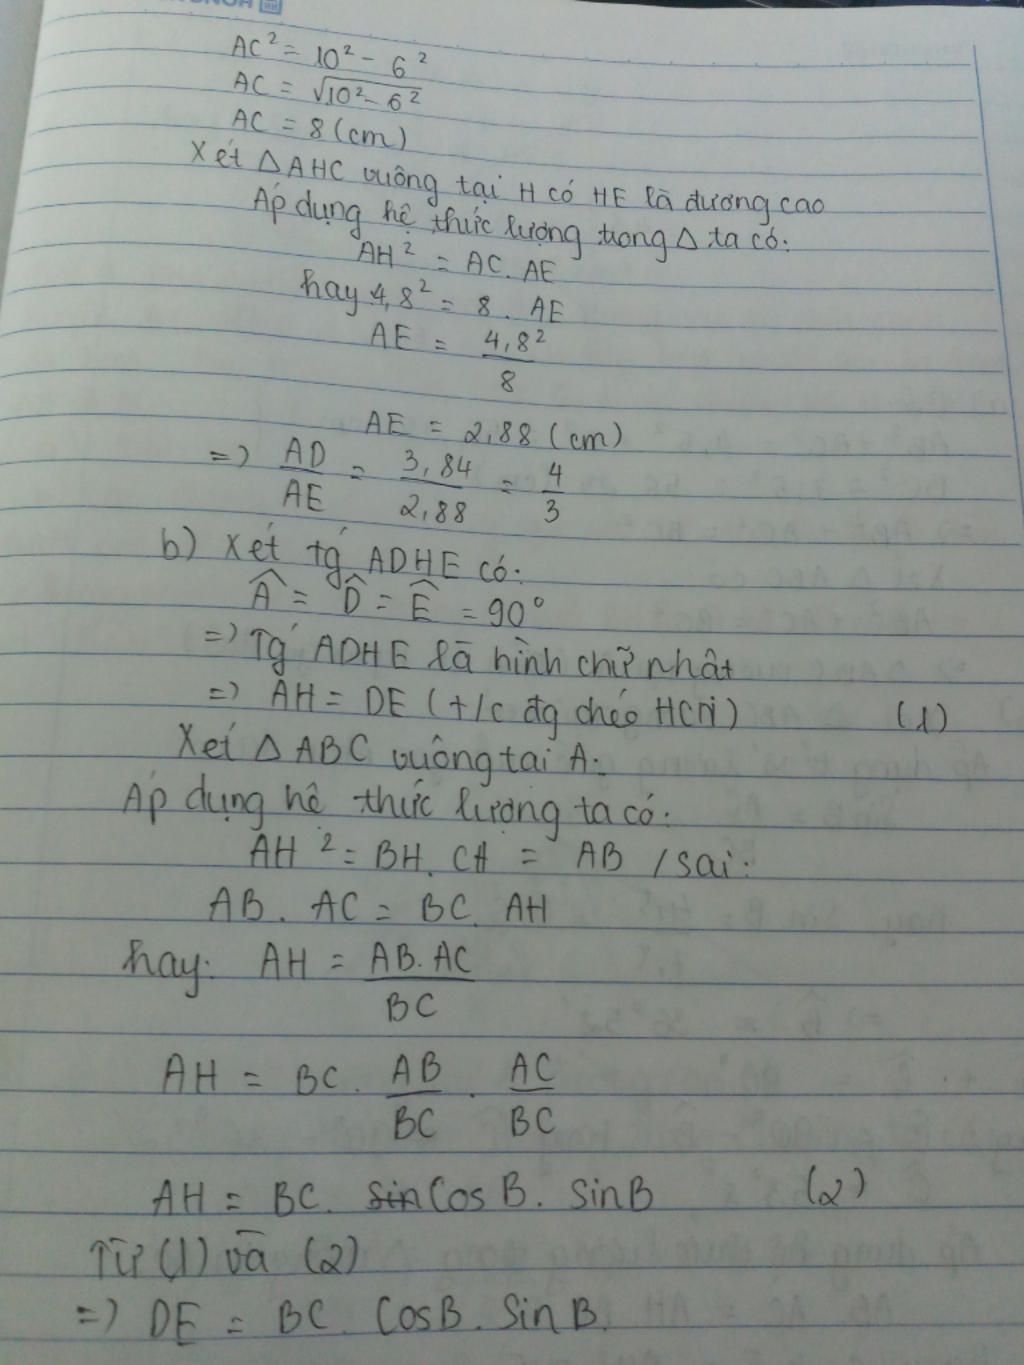 AC² = 10² - 6²
AC = √10² - 6²
AC = 8 (cm)
Xét △AHC vuông tại H có HE là đương cao
Áp dụng hệ thức lượng trong △ ta có:
AH² = AC. AE
hay 4,8² = 8 . AE
AE = 4,8² / 8
AE = 2,88 (cm)
=> AD/AE = 3,84/2,88 = 4/3
b) Xét tg ADHE có:
Â = D̂ = Ê = 90°
=> Tg ADHE là hình chữ nhật
=> AH = DE (t/c đg chéo HCN) (1)
Xét △ABC vuông tai A:
Áp dụng hê thức lượng ta có:
AH² = BH. CH = AB / sai:
AB. AC = BC. AH
hay: AH = AB.AC / BC
AH = BC . AB/BC . AC/BC
AH = BC. sin CosB. SinB (2)
Từ (1) và (2)
=> DE = BC. CosB. SinB.